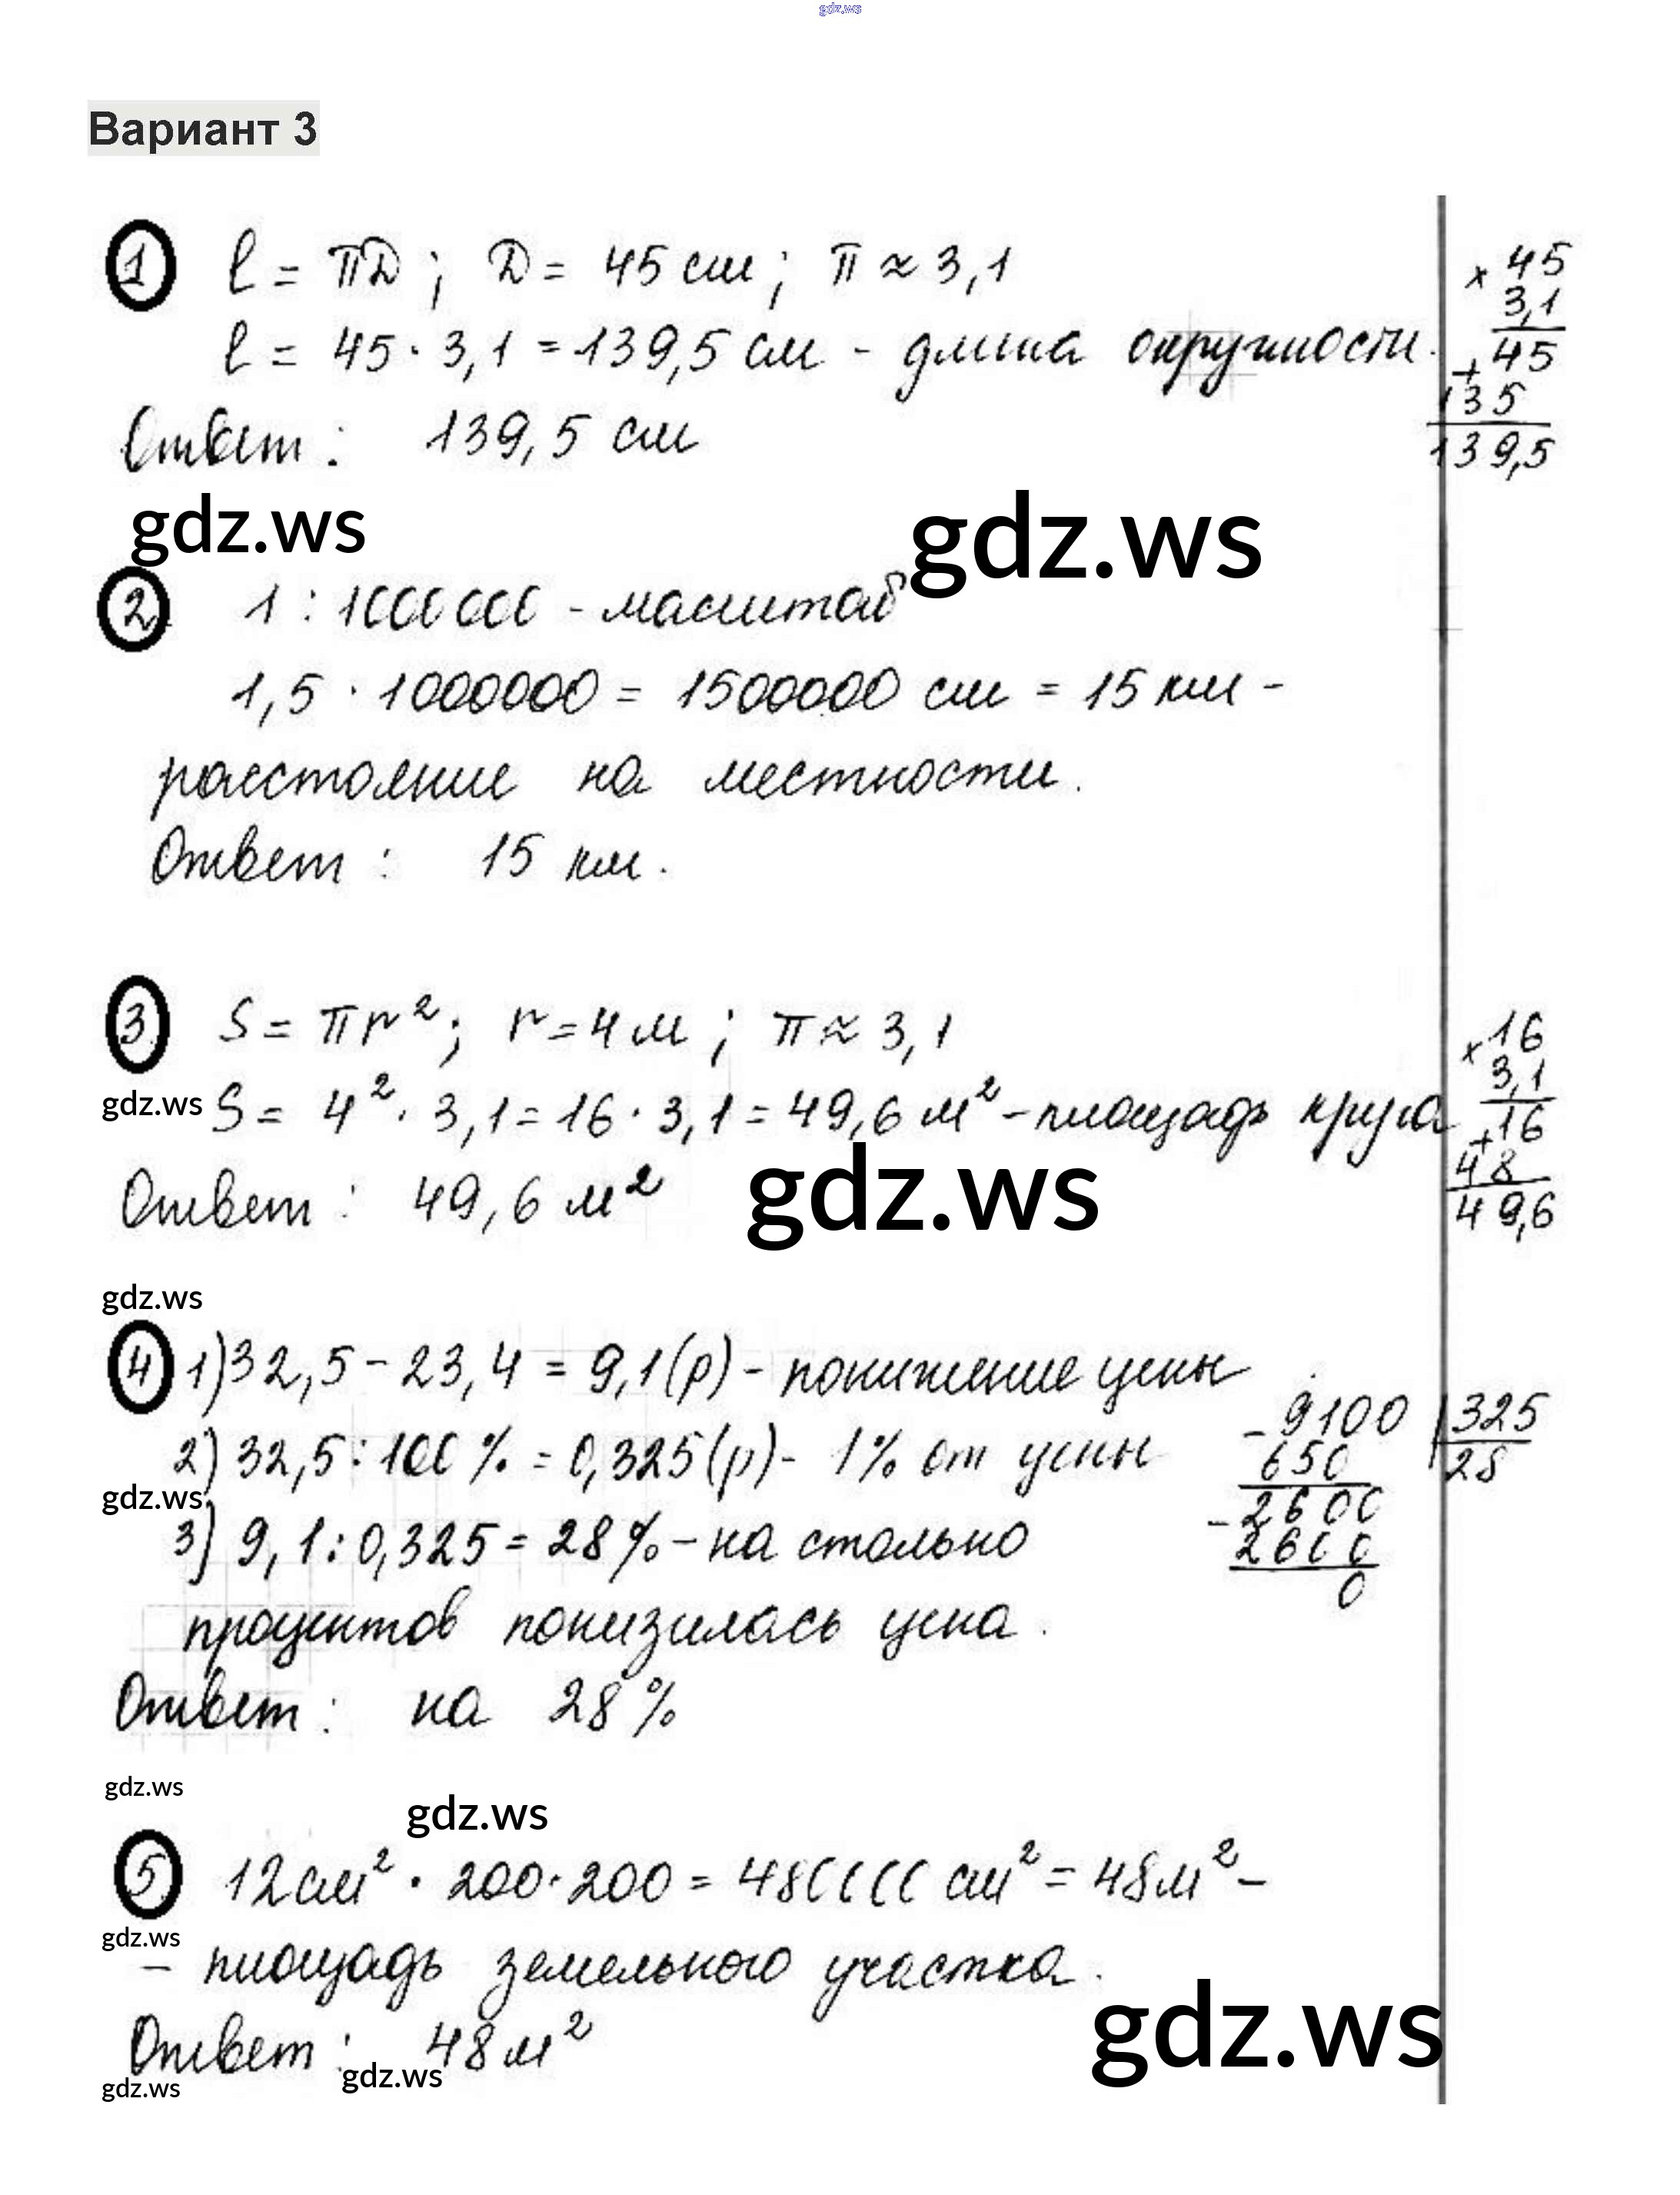 gdz.ws
Вариант 3
1 l = πD ; D = 45 см ; π ≈ 3,1
l = 45 · 3,1 = 139,5 см - длина окружности.
Ответ : 139,5 см
× 45
3,1
+ 45
135
139,5
gdz.ws gdz.ws
2 1 : 1000000 - масштаб
1,5 · 1000000 = 1500000 см = 15 км -
расстояние на местности.
Ответ : 15 км.
3 S = πr² ; r = 4 м ; π ≈ 3,1
gdz.ws S = 4² · 3,1 = 16 · 3,1 = 49,6 м² - площадь круга
Ответ : 49,6 м²
gdz.ws
× 16
3,1
+ 16
48
49,6
gdz.ws
4 1) 32,5 - 23,4 = 9,1 (р) - понижение цены
2) 32,5 : 100 % = 0,325 (р) - 1% от цены
gdz.ws
3) 9,1 : 0,325 = 28 % - на столько
процентов понизилась цена.
Ответ : на 28 %
- 9100 | 325
650 28
- 2600
2600
0
gdz.ws
gdz.ws
5 12 см² · 200 · 200 = 480000 см² = 48 м² -
gdz.ws
- площадь земельного участка.
gdz.ws
Ответ : 48 м²
gdz.ws gdz.ws